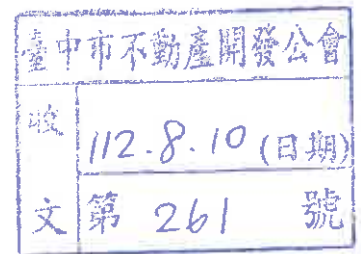 臺中市不動產開發公會
收文
112.8.10(日期)
第 261 號